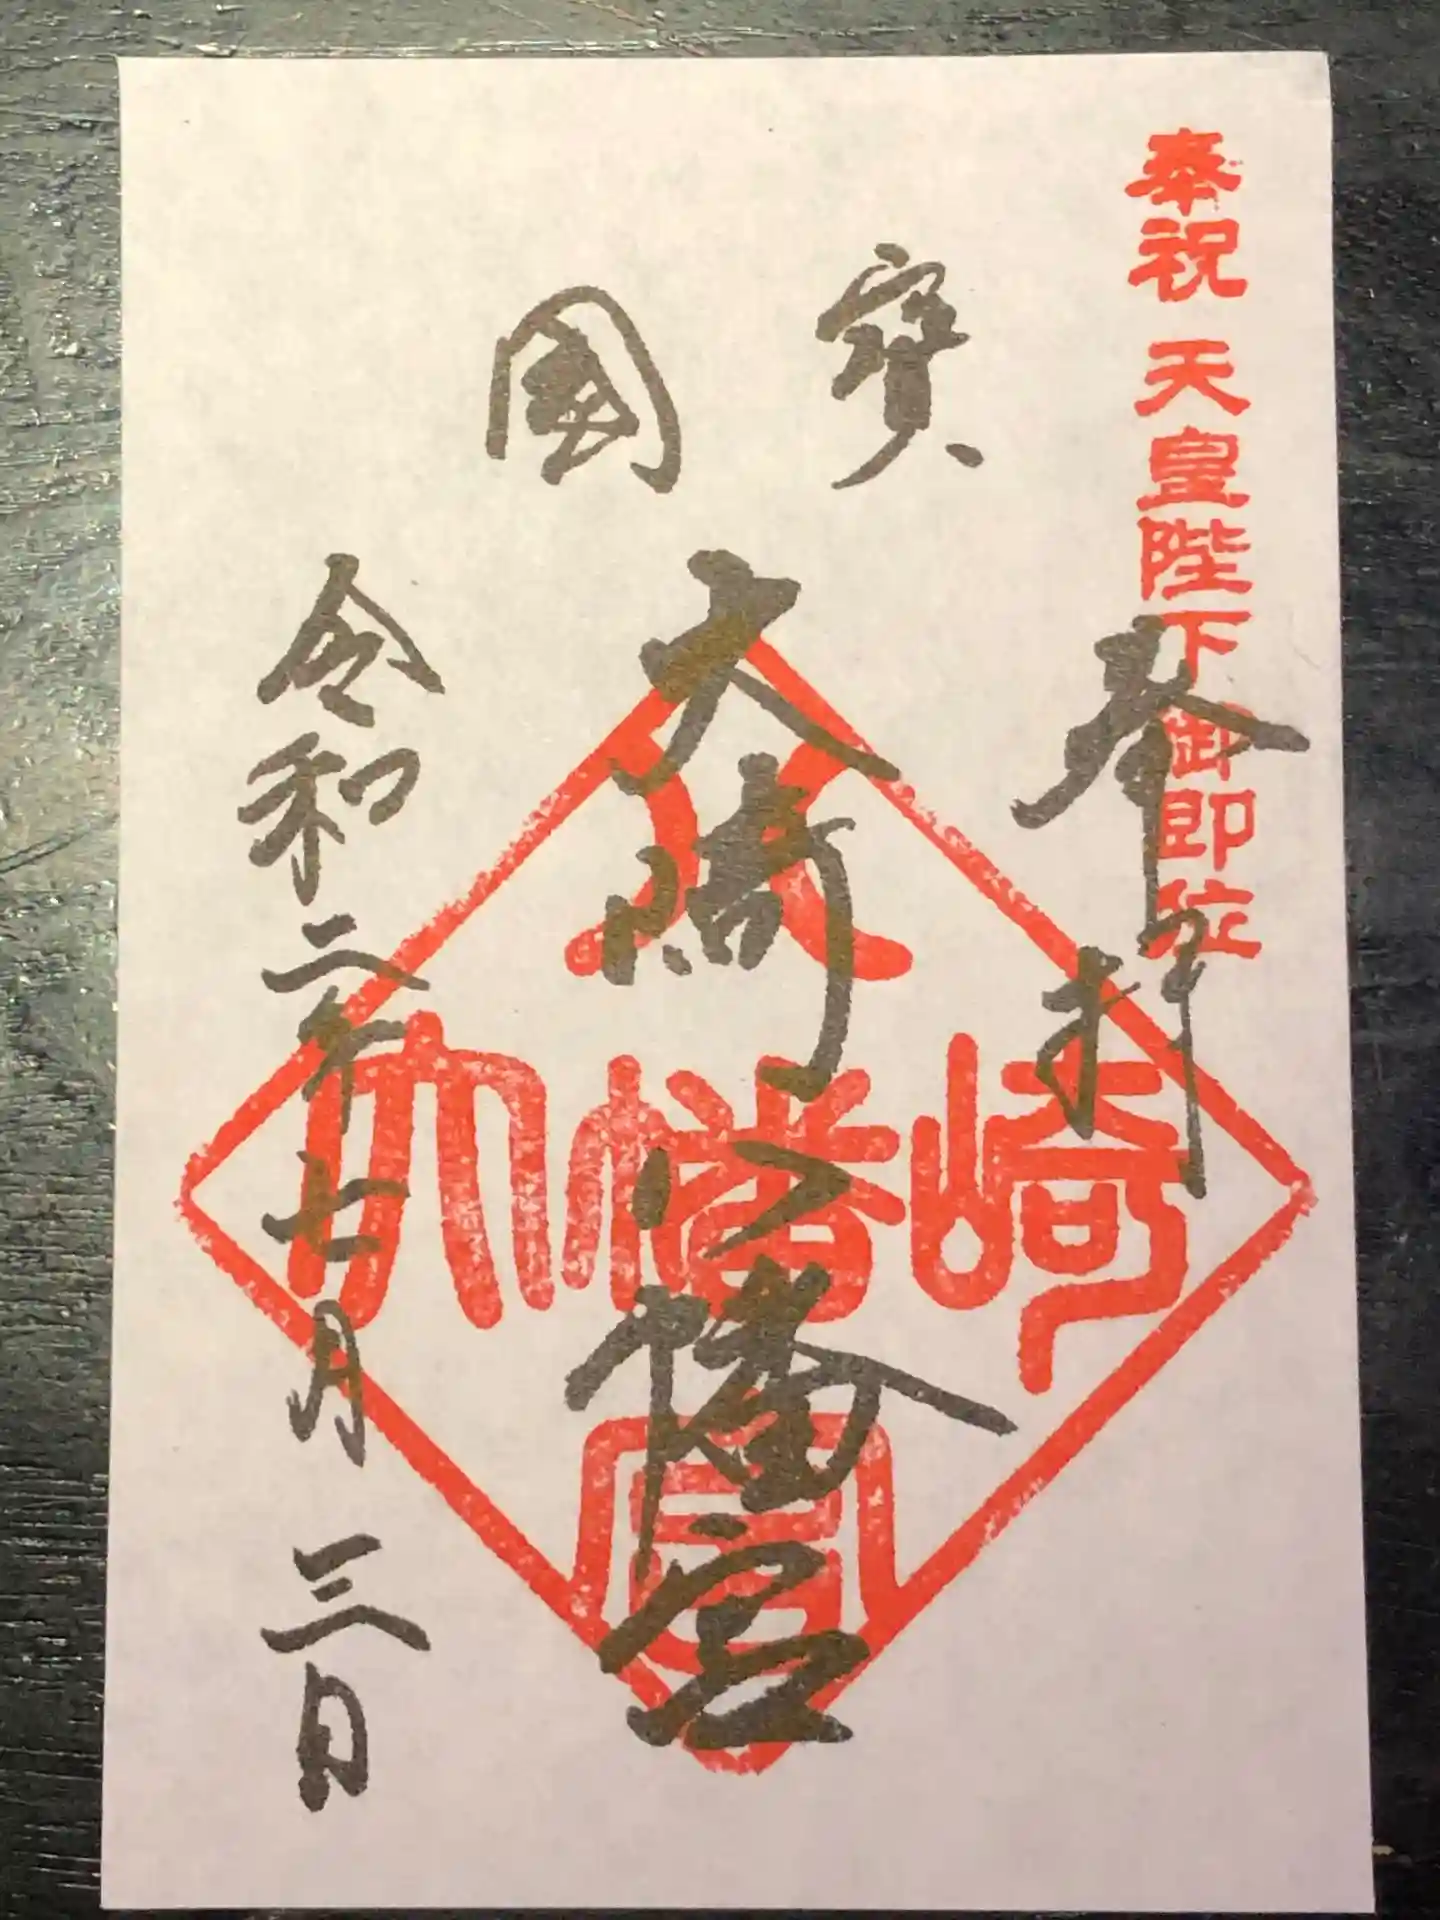 奉祝 天皇陛下御即位
奉拝
國寳
大崎八幡宮
令和二年七月三日
大崎八幡宮